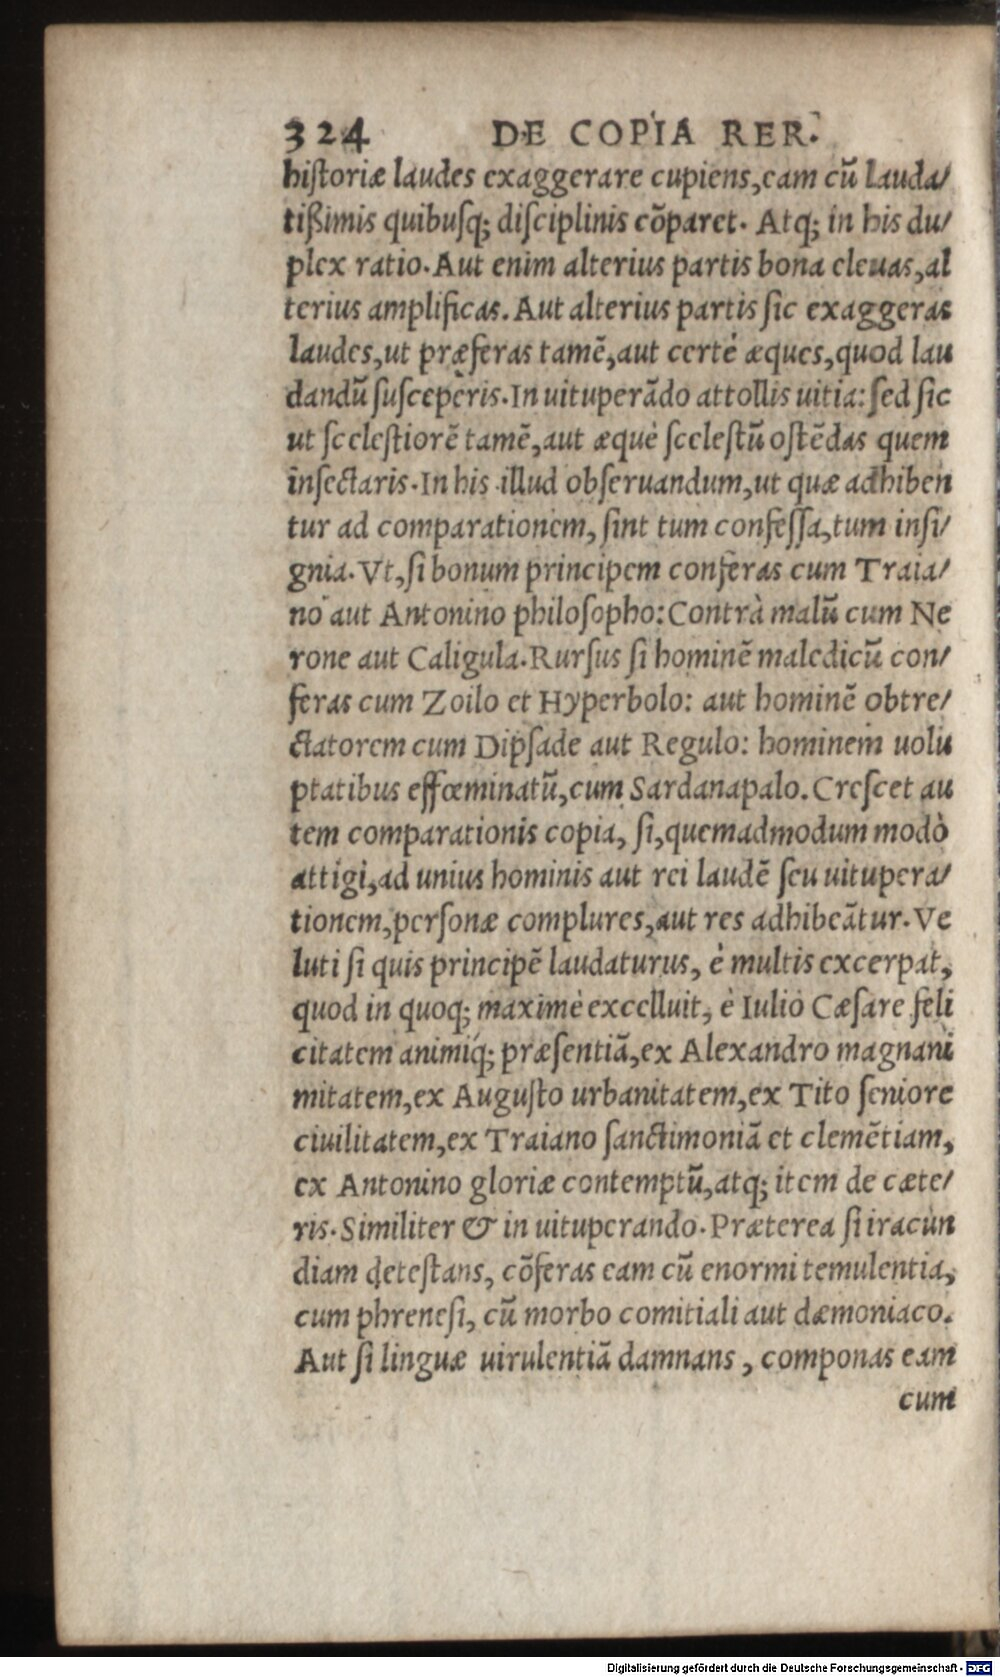 324 DE COPIA RER.
hiſtoriæ laudes exaggerare cupiens,eam cū lauda/
tiſsimis quibuſq; diſciplinis cōparet. Atq; in his du/
plex ratio. Aut enim alterius partis bona eleuas,al
terius amplificas. Aut alterius partis ſic exaggeras
laudes,ut præferas tamē,aut certè æques,quod lau
dandū ſuſceperis. In uituperādo attollis uitia: ſed ſic
ut ſceleſtiorē tamē,aut æquè ſceleſtū oſtēdas quem
inſectaris. In his illud obſeruandum,ut quæ adhiben
tur ad comparationem, ſint tum confeſſa,tum inſi/
gnia. Vt,ſi bonum principem conferas cum Traia/
no aut Antonino philoſopho: Contrà malū cum Ne
rone aut Caligula. Rurſus ſi hominē maledicū con/
feras cum Zoilo et Hyperbolo: aut hominē obtre/
ctatorem cum Dipſade aut Regulo: hominem uolu
ptatibus effœminatū,cum Sardanapalo. Creſcet au
tem comparationis copia, ſi,quemadmodum modò
attigi,ad unius hominis aut rei laudē ſeu uitupera/
tionem,perſonæ complures,aut res adhibeātur. Ve
luti ſi quis principē laudaturus, è multis excerpat,
quod in quoq; maximè excelluit, è Iulio Cæſare feli
citatem animiq́; præſentiā,ex Alexandro magnani
mitatem,ex Auguſto urbanitatem,ex Tito ſeniore
ciuilitatem,ex Traiano ſanctimoniā et clemētiam,
ex Antonino gloriæ contemptū,atq; item de cæte/
ris. Similiter & in uituperando. Præterea ſi iracun
diam deteſtans, cōferas eam cū enormi temulentia,
cum phreneſi, cū morbo comitiali aut dæmoniaco.
Aut ſi linguæ uirulentiā damnans, componas eam
cum
Digitalisierung gefördert durch die Deutsche Forschungsgemeinschaft - DFG